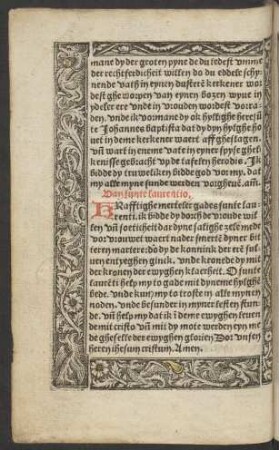 mane dy der groten pyne de du ledest vmme
der rechtferdicheit willen do du eddele schy-
nende vath in eynen dustere kerkener wor
dest ghe worpen van eynen bozen wyue in
ydeler ere vnde in vrouden wordest vorra-
den. vnde ik vormane dy ok hyllighe here sū
te Johannes baptista dat dy dyn hylghe ho
uet in deme kerkener waert affgheslagen.
vn̄ wart in eneme vate in eyner spyse ghe
kenisse gebracht vp de tafelen herodis. Ik
bidde dy truweliken bidde god vor my. dat
my alle myne sunde werden vorgheuē. amē.
Van sunte laurentio.
KRafftighe merteler gades sunte lau
renti. ik bidde dy dorch de vroude wil
len vn̄ soeticheit dar dyne salighe zele mede
vor vrouwet waert na der smerte dyner bit
teren martere. do dy de konninck der ere tu-
nen entyeghen ginck. vnde kronede dy mit
der kronen der ewyghen klaerheit. O sunte
laurēti help my to gade mit dyneme hylghē
bede. vnde kum my to troste in alle mynen
noden. vnde besunder in myner lesten stun-
de. vn̄ help my dat ik ī deme ewyghen leuen
de mit cristo vn̄ mit dy mote werden eyn me
de gheselle der ewyghen glorien Dor vnsen
heren ihesum cristum. Amen.